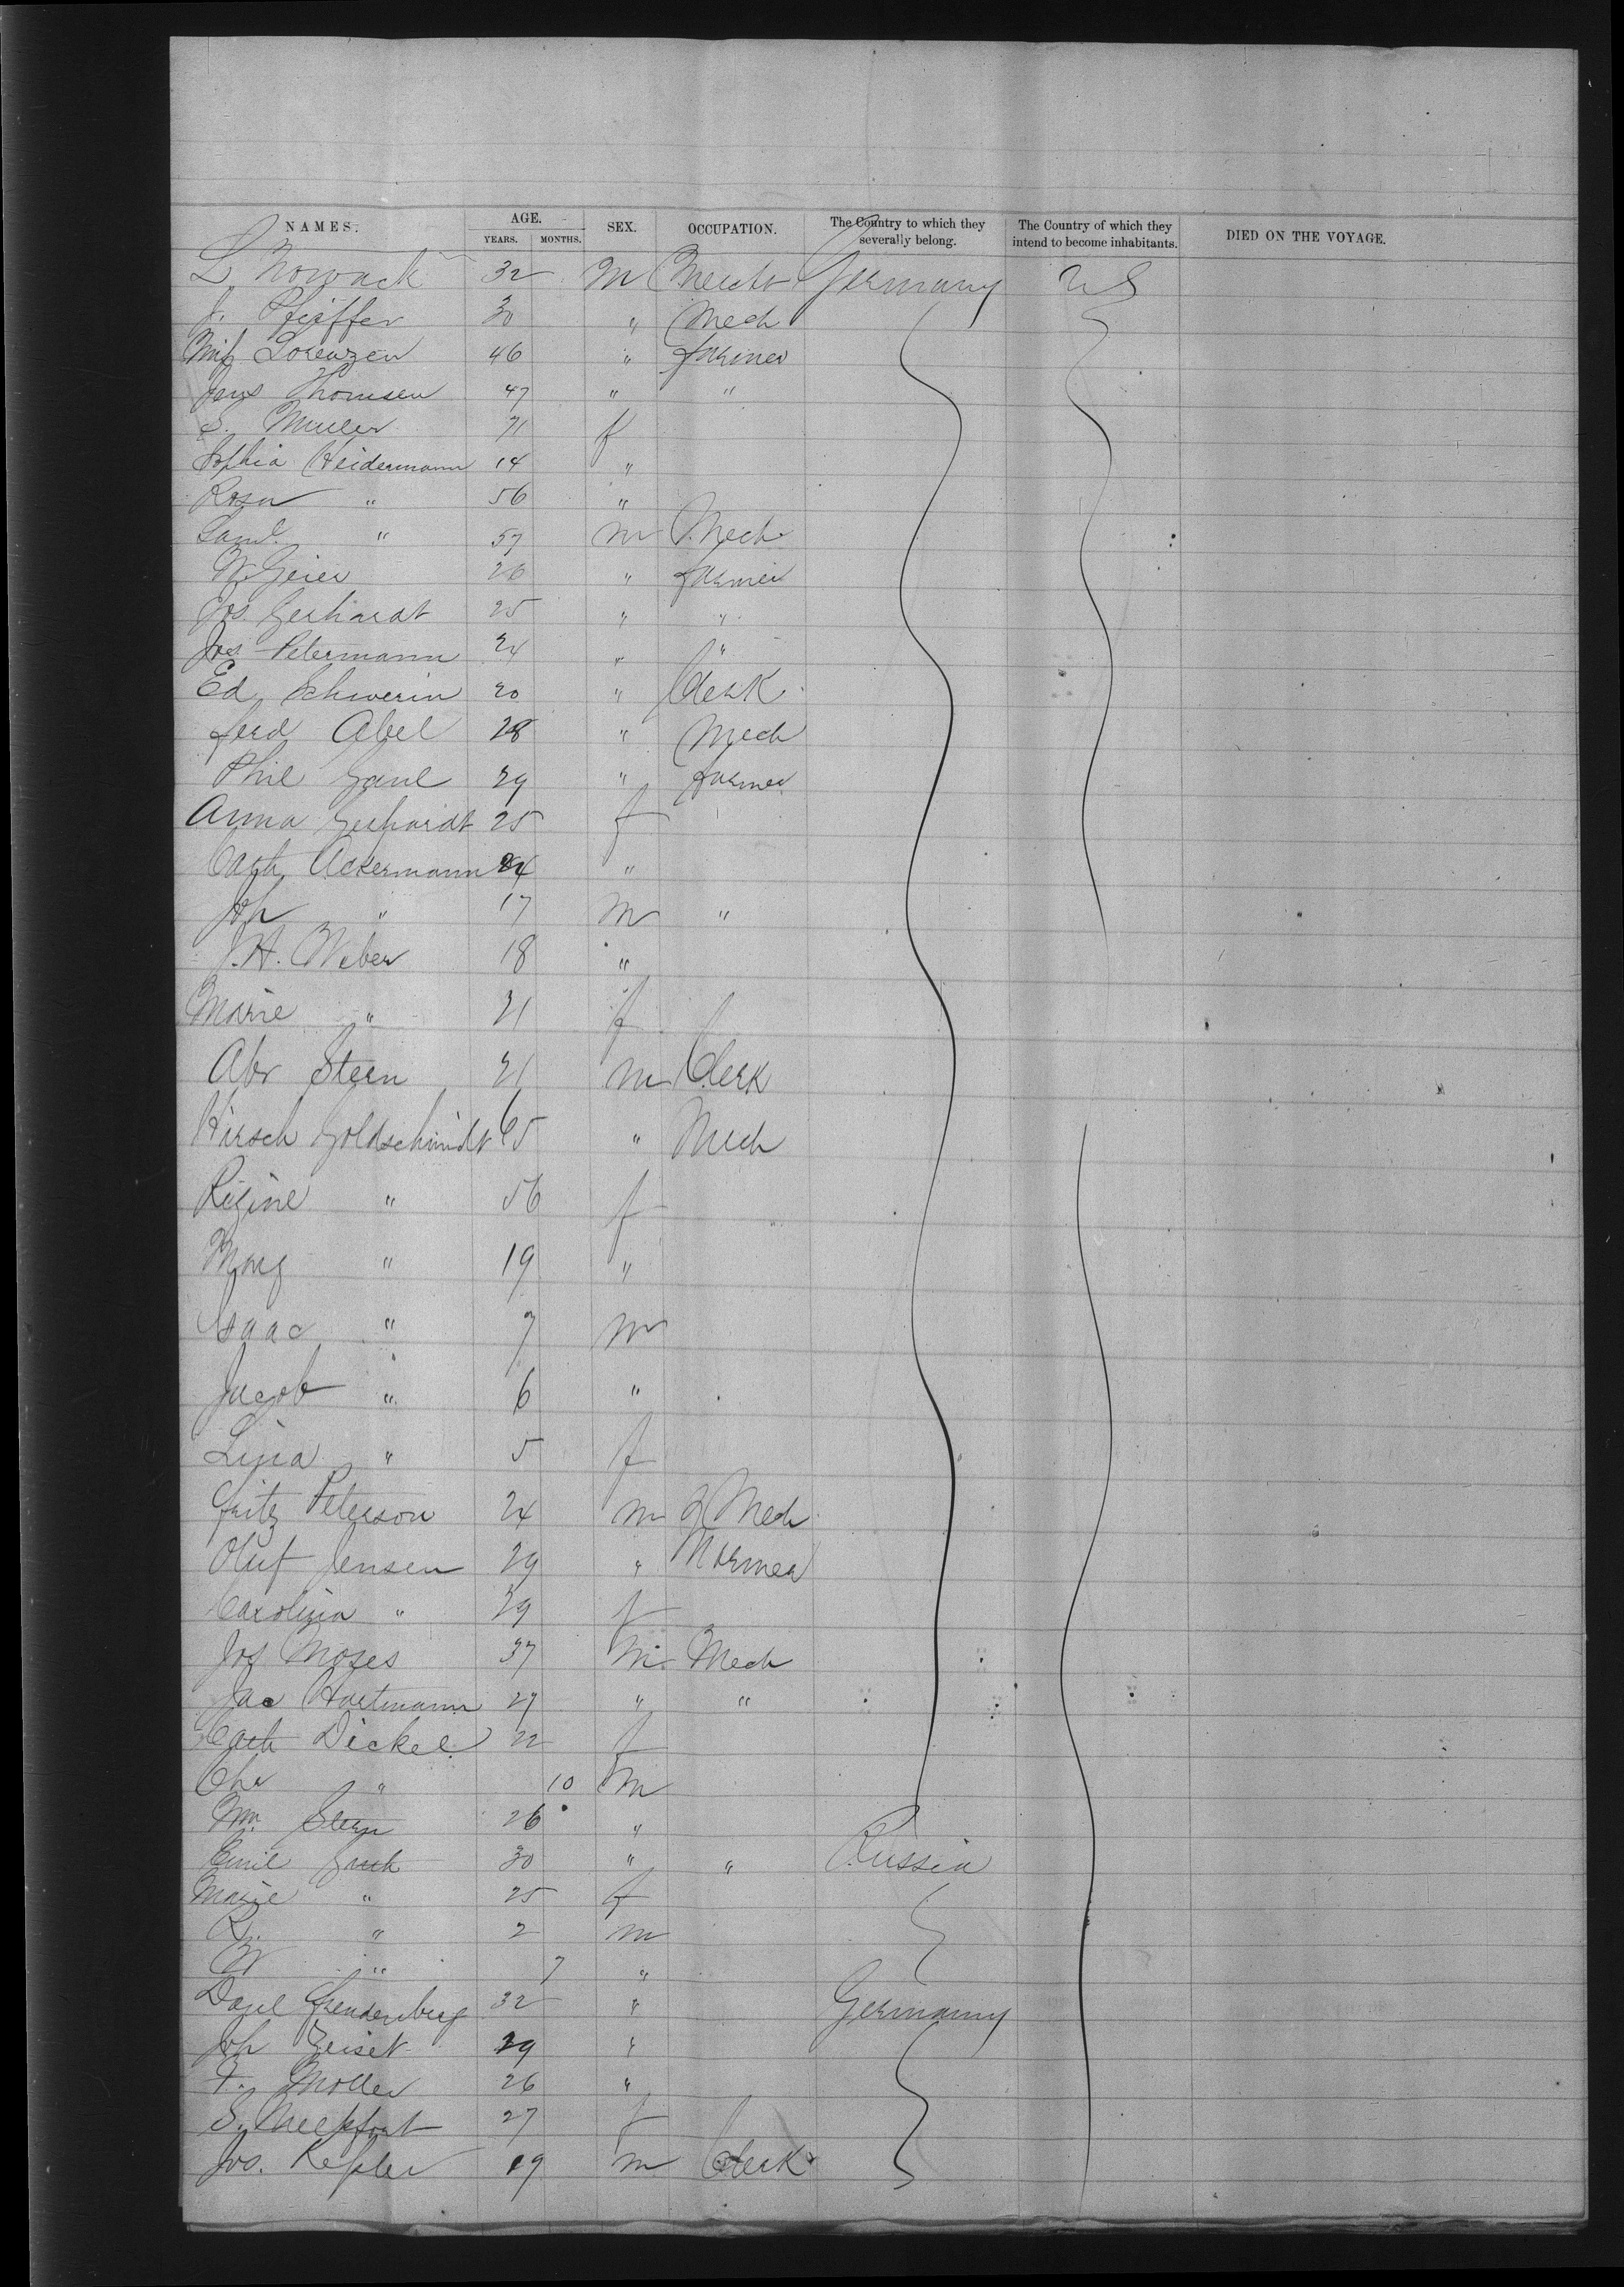 NAMES. AGE. YEARS. MONTHS. SEX. OCCUPATION. The Country to which they severally belong. The Country of which they intend to become inhabitants. DIED ON THE VOYAGE.
L Nowack 32 m Mecht Germany US
J. Pfeiffer 30 " Mech
Lorenzen 46 " farmer
Jens Thomsen 47 " "
S. Muller 71 f
Sophia Heidermann 14 "
Rosa " 56 "
Saml. " 57 m Mech
W. Geier 26 " farmer
Jos. Gerhardt 25 " "
Jos Petermann 24 " "
Ed Schwerin 20 " Clerk
ferd Abel 28 " Mech
Phil Gaul 29 " farmer
Anna Gerhardt 25 f
Cath Ackermann 24 "
Joh " 17 m "
J.H. Weber 18 "
Marie " 21 f
Abr Stern 21 m Clerk
Hirsch Goldschmidt 65 " Mech
Regine " 56 f
Marg " 19 "
Isaac " 7 m
Jacob " 6 "
Lina " 5 f
fritz Peterson 24 m Mech
Oluf Jensen 29 "
Carolina " 29 f
Jos Moses 37 m Mech
Jac Hartmann 27 " "
Cath Dickel 22 f
Chr " 10 m
Wm. Stern 26 "
Emil 30 " " Russia
Marie " 25 f
R. " 2 m
W " 7 "
Danl Freudenberg 32 " Germany
Joh Zeiset 29 "
F. Moller 26 "
S. 27 f
Jos. Kepler 19 m Clerk